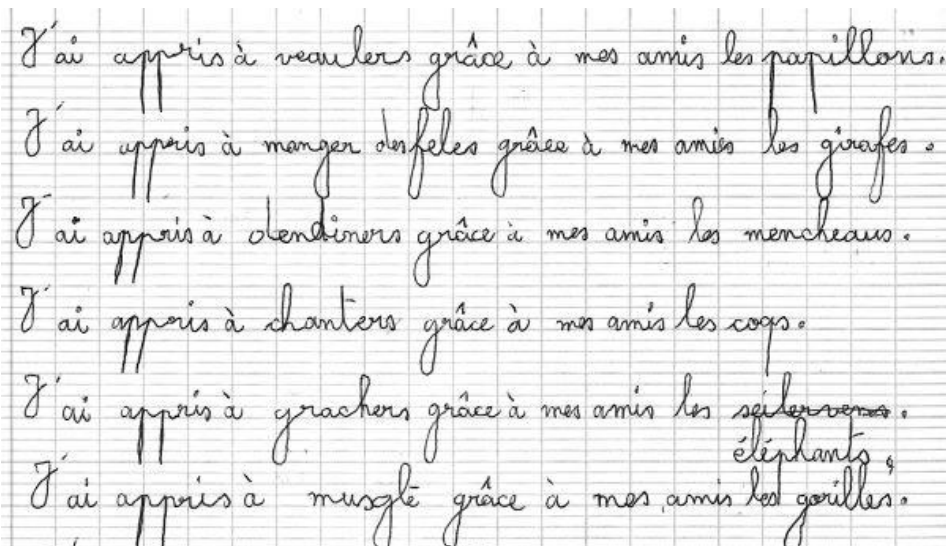 J'ai appris à veaulers grâce à mes amis les papillons.
J'ai appris à manger des feles grâce à mes amies les girafes.
J'ai appris à dendiners grâce à mes amis les mencheaus.
J'ai appris à chanters grâce à mes amis les coqs.
J'ai appris à grachers grâce à mes amis les
éléphants.
J'ai appris à musglè grâce à mes amis les gorilles.